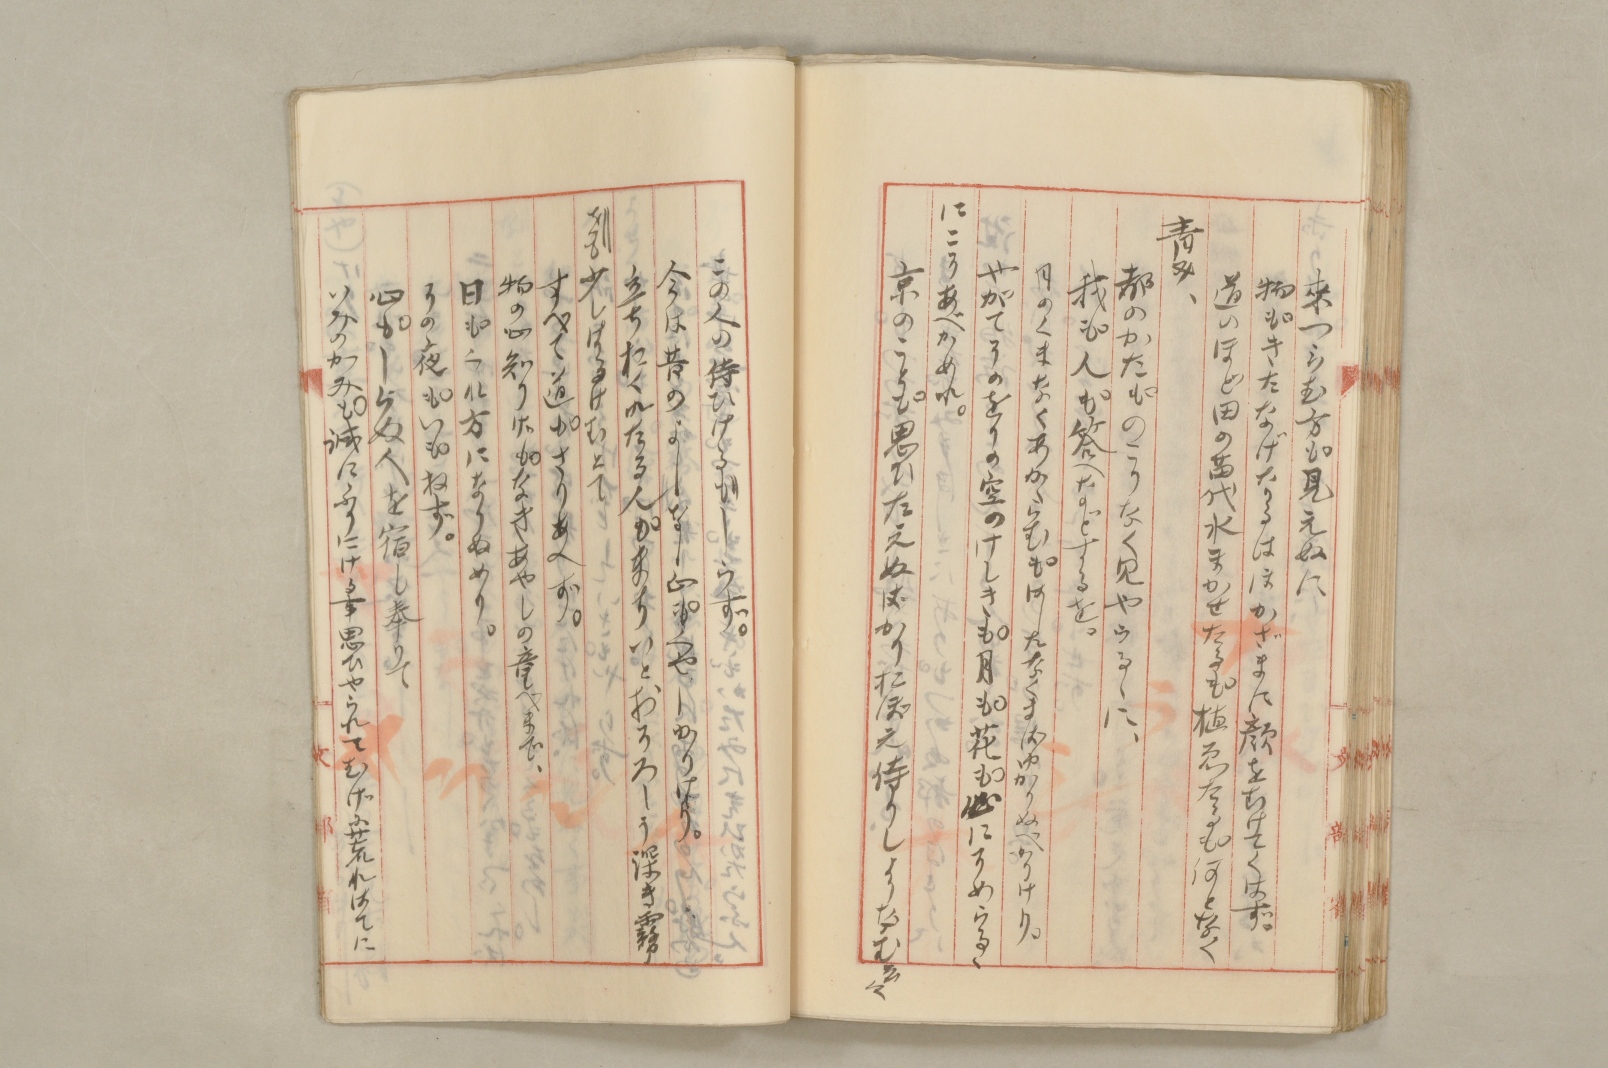 来つらむ方も見えぬに
物もきたなげなるはほかざまに顔をむけてくはず。
道のほど田の苗代水まかせたるも植ゑたるも何となく
青み、
都のかたものこりなく見やらるゝに、
我も人も答へなどするを。
月のくまなくあかゝらむもはしたなくまばゆかりぬべかりけり。
やがてそのをりの空のけしきも月も花も心にそめらるゝ
にこそあべかめれ。
京のことも思ひたえぬばかりおぼえ侍りしよりなむ云々
この人の侍ひけるもしらず。
今は昔のよしなし心もくやしかりけり。
立ちおくれたる人々もまちいとおそろしう深き霧
をも少しはるけむとて
すべて道もさりあへず。
物の心知りげもなきあやしの童べまで、
日もくれ方になりぬめり。
その夜もいもねず。
心もしらぬ人を宿し奉りて
いみのかみも誠にふりにける事思ひやられてむげに荒れはてに
文部省